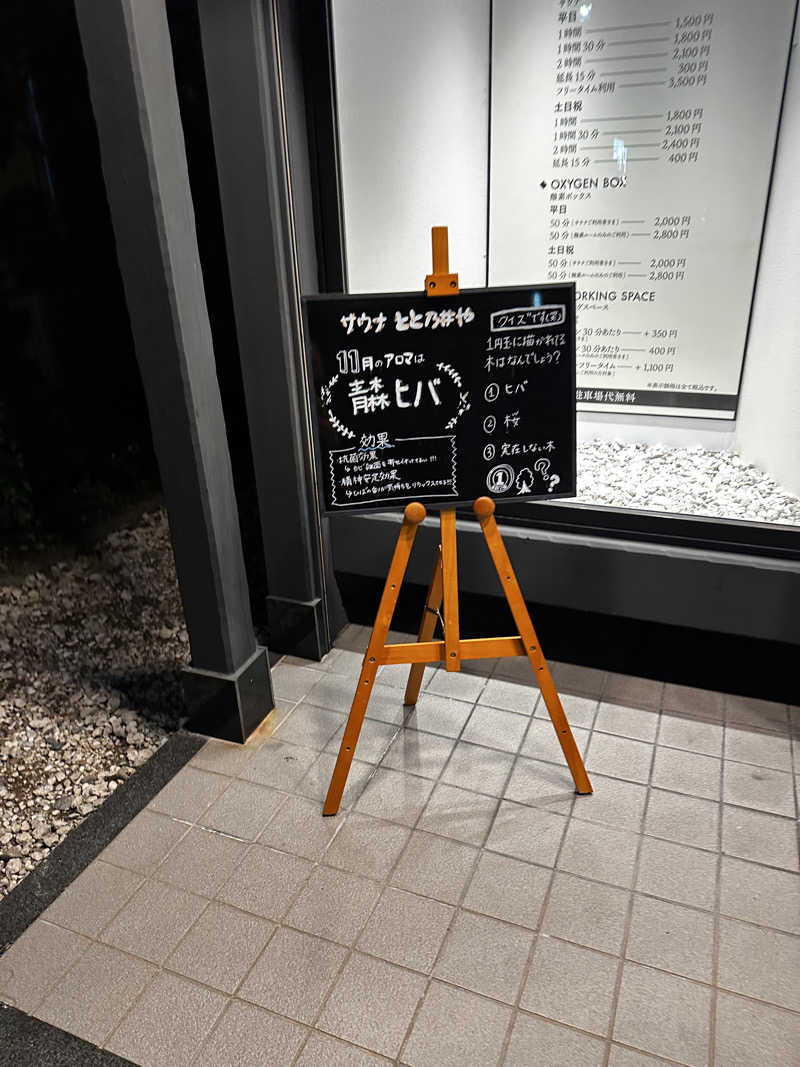 サウナ
平日
1時間 1,500円
1時間30分 1,800円
2時間 2,100円
延長15分 300円
フリータイム利用 3,500円
土日祝
1時間 1,800円
1時間30分 2,100円
2時間 2,400円
延長15分 400円
◆OXYGEN BOX
酸素ボックス
平日
50分[サウナご利用者さま] 2,000円
50分[酸素ルームのみのご利用] 2,800円
土日祝
50分[サウナご利用者さま] 2,000円
50分[酸素ルームのみのご利用] 2,800円
ORKING SPACE
グスペース
30分あたり +350円
30分あたり 400円
フリータイム +1,100円
※表示価格は全て税込です。
駐車場代無料
サウナ とと乃井や
11月のアロマは
青森ヒバ
効果
抗菌効果
精神安定効果
クイズです(笑)
1円玉に描かれてる
木はなんでしょう?
① ヒバ
② 桜
③ 実在しない木
1
? ?